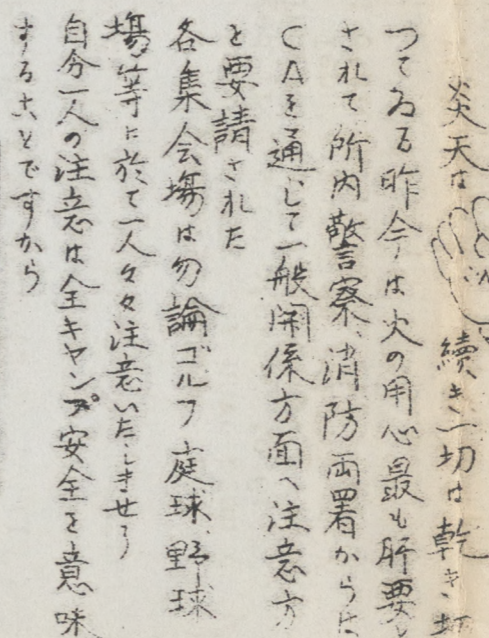 炎天は続き一切は乾き
つてゐる昨今は火の用心最も肝要と
されて所内警察、消防両署からは
CAを通して一般関係方面へ注意方
を要請された
各集会場は勿論ゴルフ庭球野球
場等に於て一人々々注意いたしませう
自分一人の注意は全キャンプ安全を意味
することですから